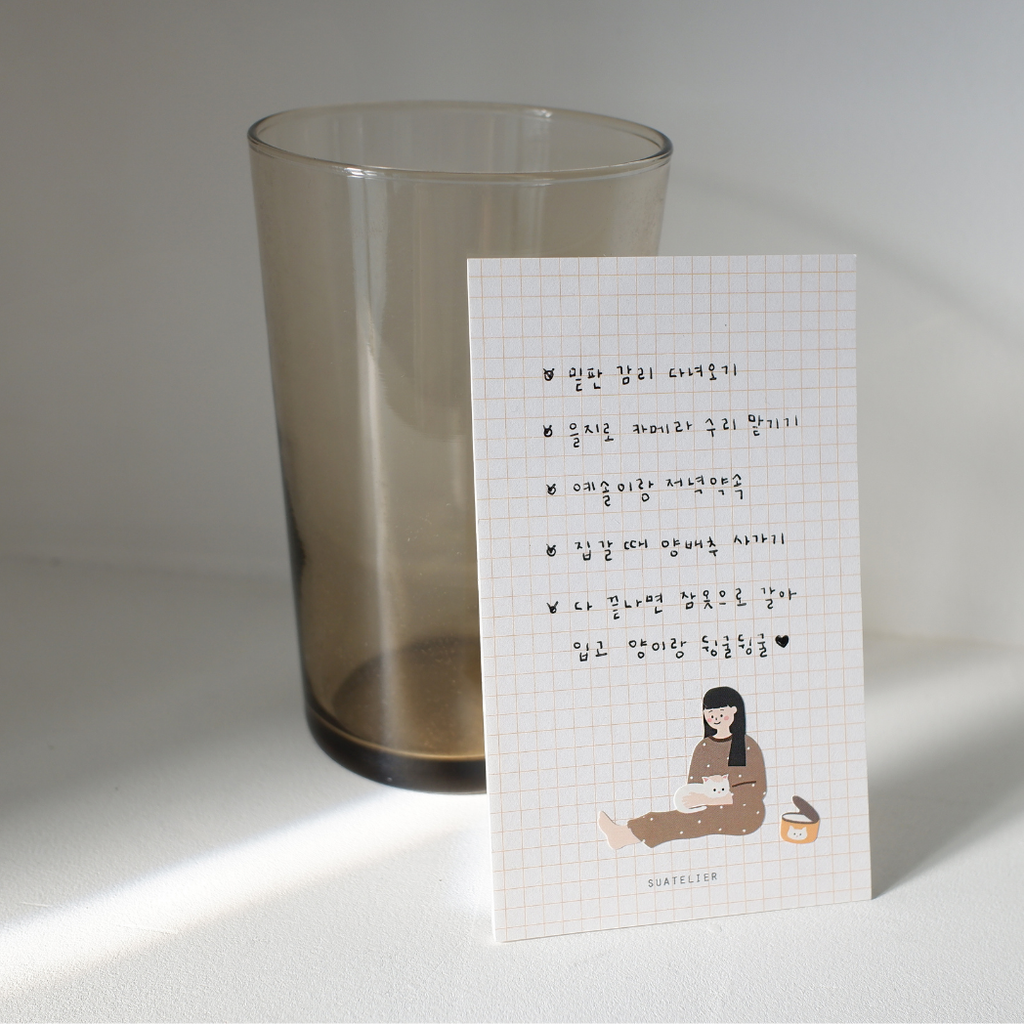 밀판 감리 다녀오기
을지로 카메라 수리 맡기기
예솔이랑 저녁약속
집갈 때 양배추 사가기
다 끝나면 잠옷으로 갈아
입고 양이랑 뒹굴뒹굴♥
SUATELIER